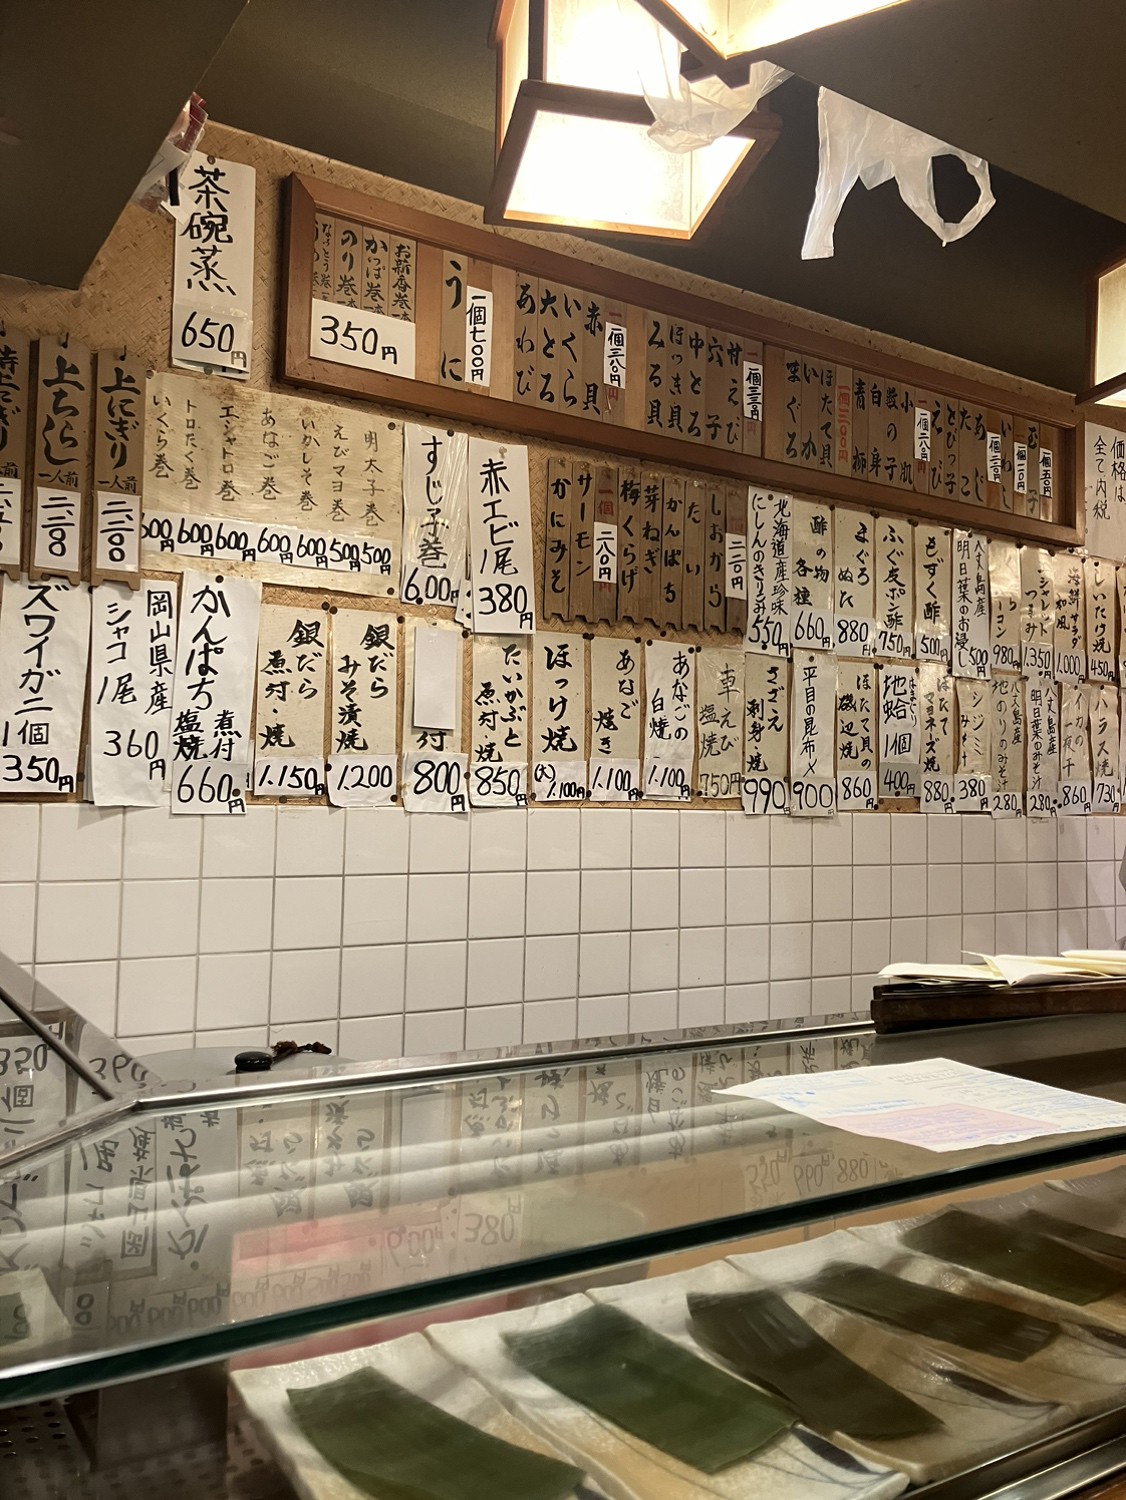 茶碗蒸
650円
のり巻
かっぱ巻
お新香巻
350円
うに
一個七〇〇円
あわび
大とろ
いくら
赤貝
一個三八〇円
みる貝
ほっき貝
中とろ
穴子
甘えび
一個三三〇円
まぐろ
いか
ほたて貝
一個三〇〇円
青柳
白身
数の子
小肌
一個二八〇円
えび
とびっ子
たこ
あじ
価格は
全て内税
上ちらし
一人前
二、二〇〇
上にぎり
一人前
二、二〇〇
いくら巻
600円
トロたく巻
600円
エシャトロ巻
600円
あなご巻
600円
いかしそ巻
600円
えびマヨ巻
500円
明太子巻
500円
すじ子巻
600円
赤エビ
1尾
380円
かにみそ
サーモン
一個
二八〇円
梅くらげ
芽ねぎ
かんぱち
たい
しおから
北海道産珍味
にしんのきりみ
550円
酢の物
各種
660円
まぐろ
ぬた
880円
ふぐ皮ポン酢
750円
もずく酢
500円
八丈島産
明日葉のお浸し
500円
980円
1.350円
海鮮サラダ
和風
1.000円
しいたけ焼
450円
ズワイガニ
1個
350円
岡山県産
シャコ1尾
360円
かんぱち
煮付
塩焼
660円
銀だら
煮付・焼
1.150円
銀だら
みそ漬焼
1.200円
付
800円
たいかぶと
煮付・焼
850円
ほっけ焼
(大)1.100円
あなご
焼き
1.100円
あなごの
白焼
1.100円
車えび
塩焼
750円
さざえ
刺身・焼
990円
平目の昆布〆
900円
ほたて貝の
磯辺焼
860円
地蛤
1個
400円
ほたて
マヨネーズ焼
880円
シジミ
みそ汁
380円
八丈島産
地のりのみそ汁
280円
八丈島産
明日葉のみそ汁
280円
イカの
一夜干
860円
ハラス焼
730円